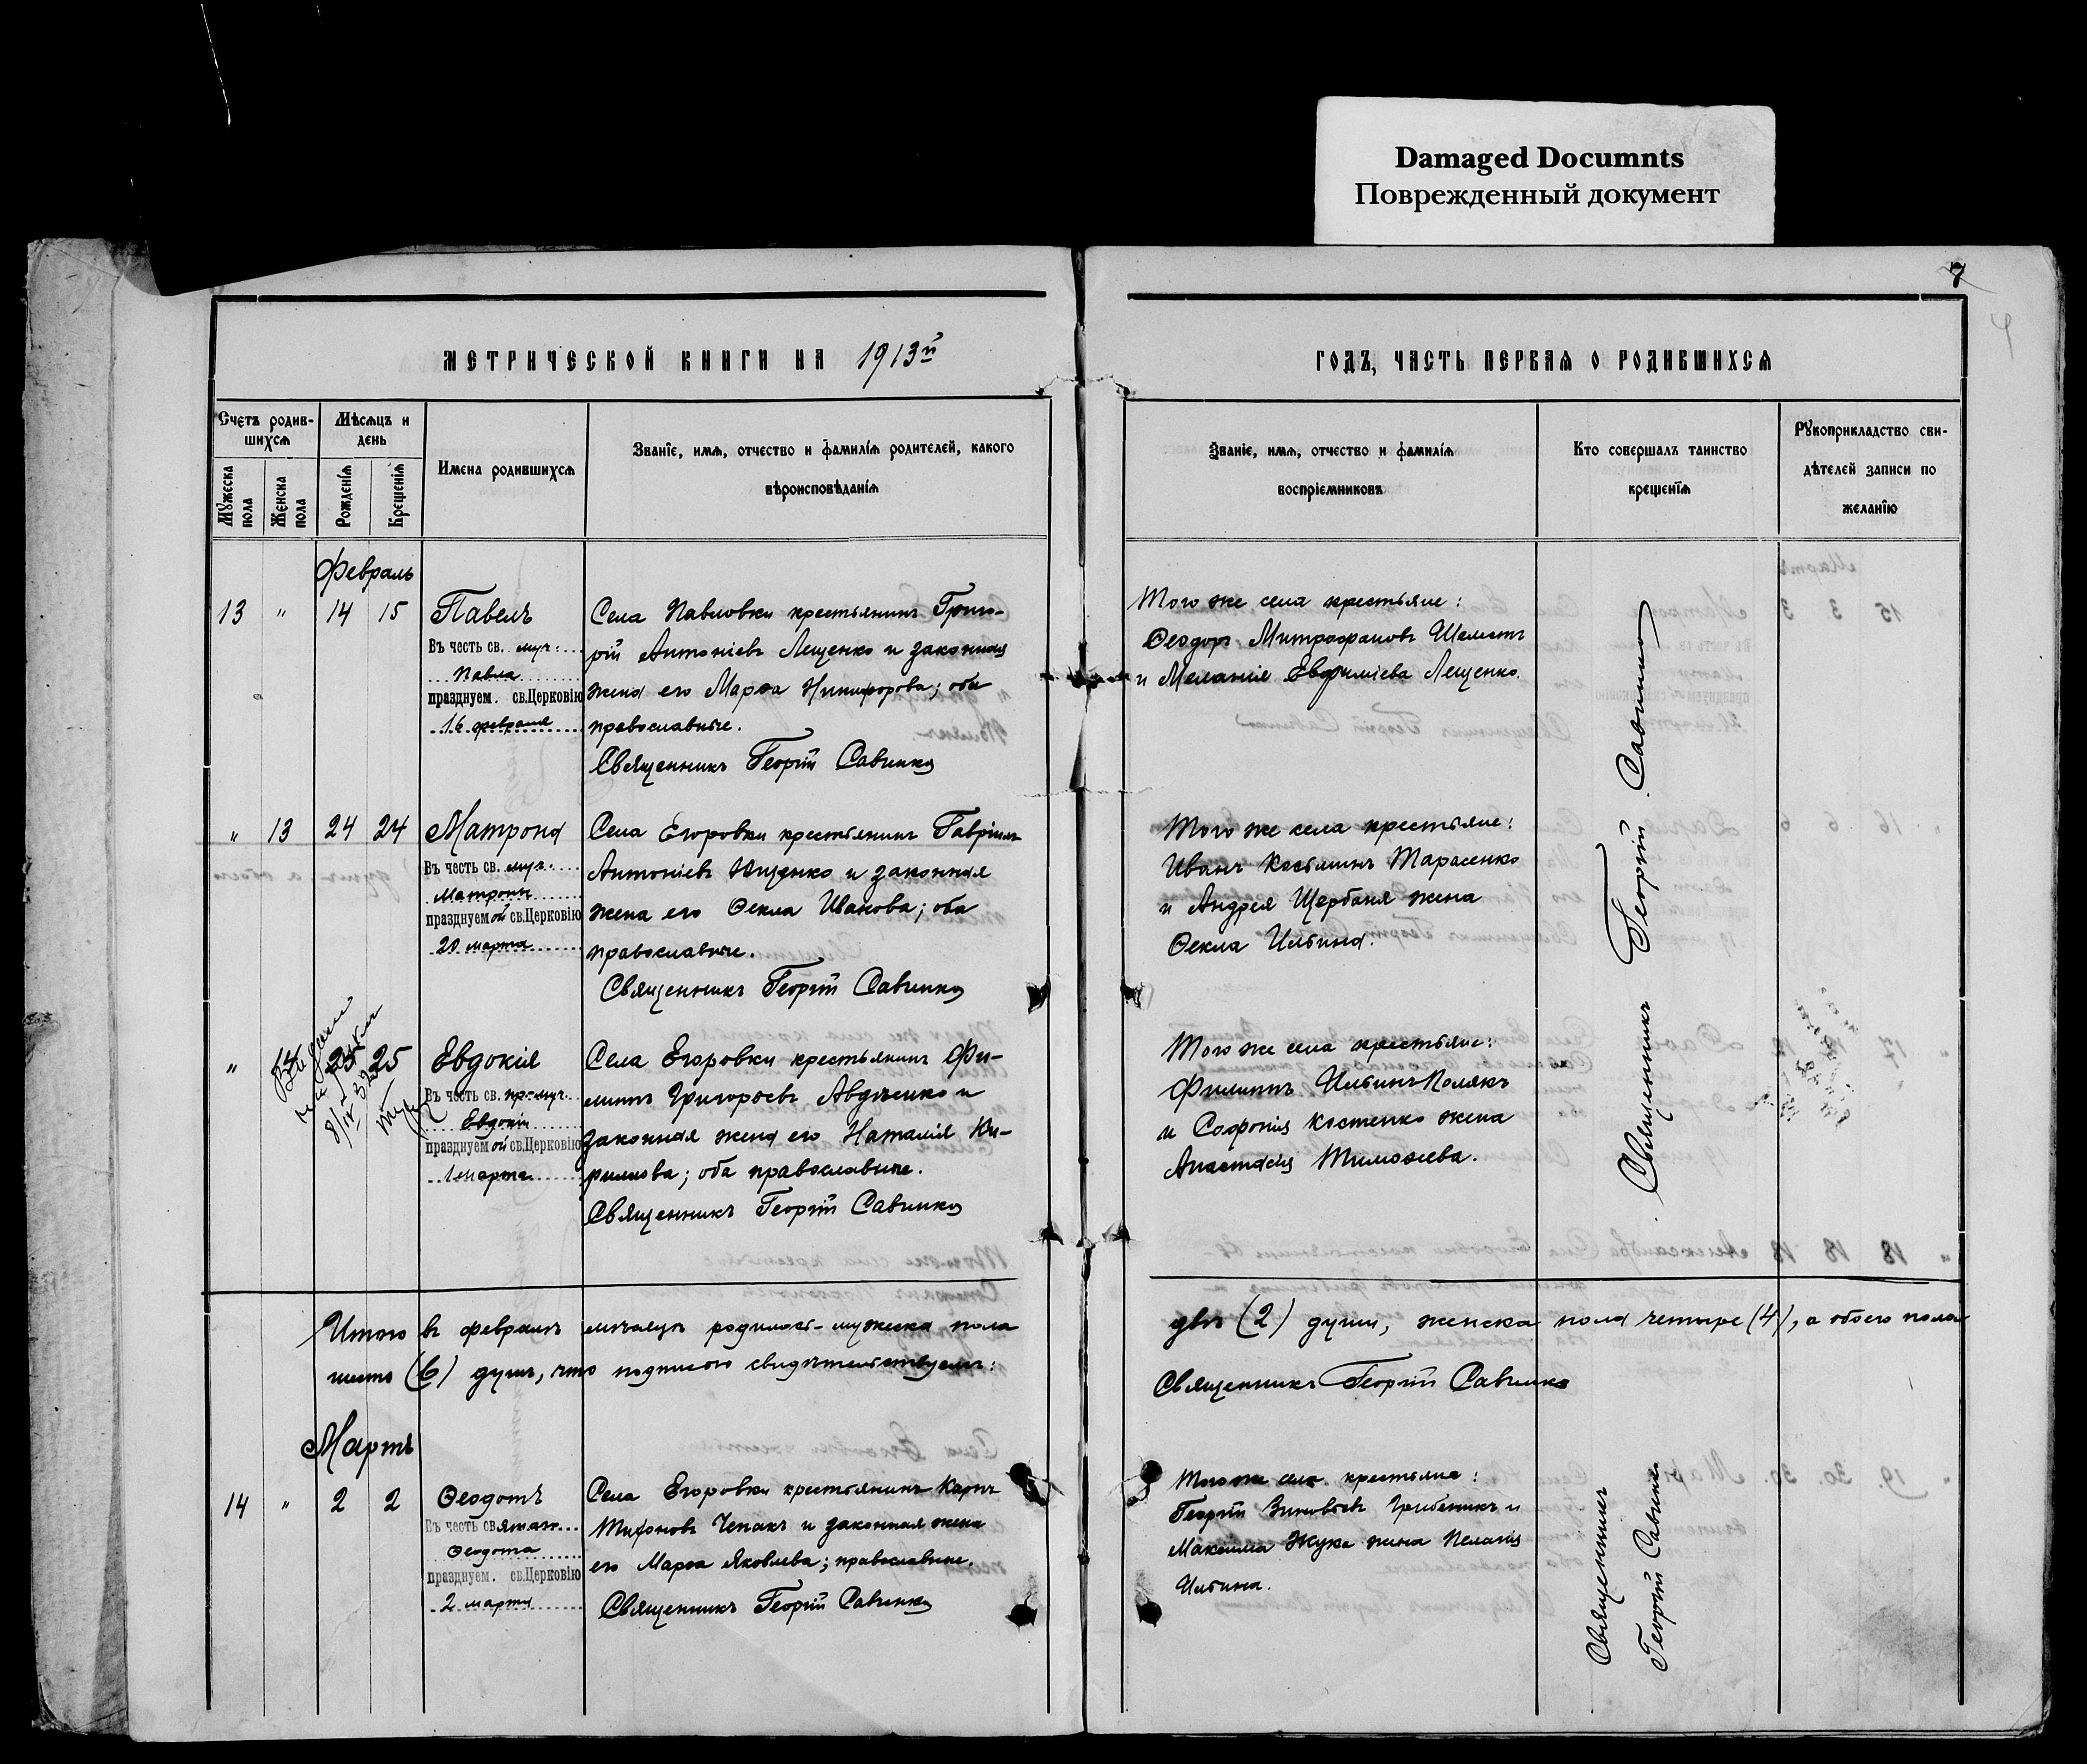 Damaged Documnts
Поврежденный документ
7
МЕТРИЧЕСКОЙ КНИГИ НА 1913й
ГОДЪ, ЧАСТЬ ПЕРВАЯ О РОДИВШИХСЯ
Счетъ родив-
шихся
Мѣсяцъ и
день
Мужеска
пола
Женска
пола
Рожденія
Крещенія
Имена родившихся
Званіе, имя, отчество и фамилія родителей, какого
вѣроисповѣданія
Званіе, имя, отчество и фамилія
воспріемниковъ
Кто совершалъ таинство
крещенія
Рукоприкладство сви-
дѣтелей записи по
желанію
Февраль
13 " 14 15 Павелъ
Въ честь св. муч.
Павла
празднуем. св.Церковію
16 февраля
Села Павловки крестьянинъ Григо-
рій Антоніевъ Лещенко и законная
жена его Марѳа Никифорова; оба
православные.
Священникъ Георгій Савинко
Того же села крестьяне:
Ѳеодоръ Митрофановъ Шеметъ
и Меланія Евфиміева Лещенко.
" 13 24 24 Матрона
Въ честь св. муч.
Матроны
празднуемой св.Церковію
20 марта
Села Егоровки крестьянинъ Гавріилъ
Антоніевъ Ющенко и законная
жена его Ѳекла Иванова; оба
православные.
Священникъ Георгій Савинко
Того же села крестьяне:
Иванъ Косьминъ Тарасенко
и Андрея Щербаня жена
Ѳекла Ильина.
" 14 25 25 Евдокія
Въ честь св. пр-муч.
Евдокіи
празднуемой св.Церковію
1 марта
Села Егоровки крестьянинъ Фи-
липпъ Григорьевъ Авдѣенко и
законная жена его Наталія Ки-
риллова; оба православные.
Священникъ Георгій Савинко
Того же села крестьяне:
Филиппъ Ильинъ Полякъ
и Софронія Костенко жена
Анастасія Тимоѳеева.
Священникъ Георгій Савинко
Итого въ февралѣ мѣсяцѣ родилось мужеска пола
двѣ (2) души, женска пола четыре (4), а обоего пола
шесть (6) душъ, что подписью свидѣтельствуемъ:
Священникъ Георгій Савинко
Мартъ
14 " 2 2 Ѳеодотъ
Въ честь святаго
Ѳеодота
празднуем. св.Церковію
2 марта
Села Егоровки крестьянинъ Карпъ
Тихоновъ Чепакъ и законная жена
его Марѳа Яковлева; православные.
Священникъ Георгій Савинко
Того же села крестьяне:
Георгій Зиновьевъ Гребеникъ и
Максима Жука жена Пелагія
Ильина.
Священникъ
Георгій Савинко